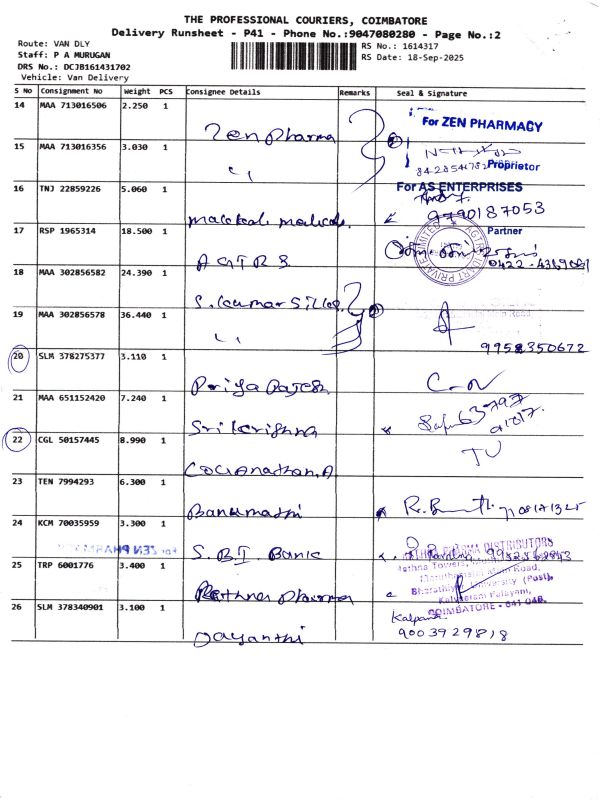 THE PROFESSIONAL COURIERS, COIMBATORE
Delivery Runsheet - P41 - Phone No.:9047080280 - Page No.:2
Route: VAN DLY
Staff: P A MURUGAN
DRS No.: DCJB161431702
Vehicle: Van Delivery
RS No.: 1614317
RS Date: 18-Sep-2025
S No Consignment No Weight PCS Consignee Details Remarks Seal & Signature
14 MAA 713016506 2.250 1 Zen Pharma For ZEN PHARMACY
15 MAA 713016356 3.030 1 Proprietor
16 TNJ 22859226 5.060 1 For AS ENTERPRISES
9790187053
17 RSP 1965314 18.500 1 Partner
18 MAA 302856582 24.390 1
19 MAA 302856578 36.440 1
9958350672
20 SLM 378275377 3.110 1 Priya Rajesh
21 MAA 651152420 7.240 1 Sri krishna
22 CGL 50157445 8.990 1
23 TEN 7994293 6.300 1 Banumathi
24 KCM 70035959 3.300 1 S.B.I. Bank
For ZEN PHARMACY
25 TRP 6001776 3.400 1 Rathna pharma
RATHNA PHARMA DISTRIBUTORS
Rathna Towers,
Maruthamalai Main Road,
Bharathiyar University (Post),
Kalveeram Palayam,
COIMBATORE - 641 046.
26 SLM 378340901 3.100 1 Jayanthi
Kalpana
9003929818